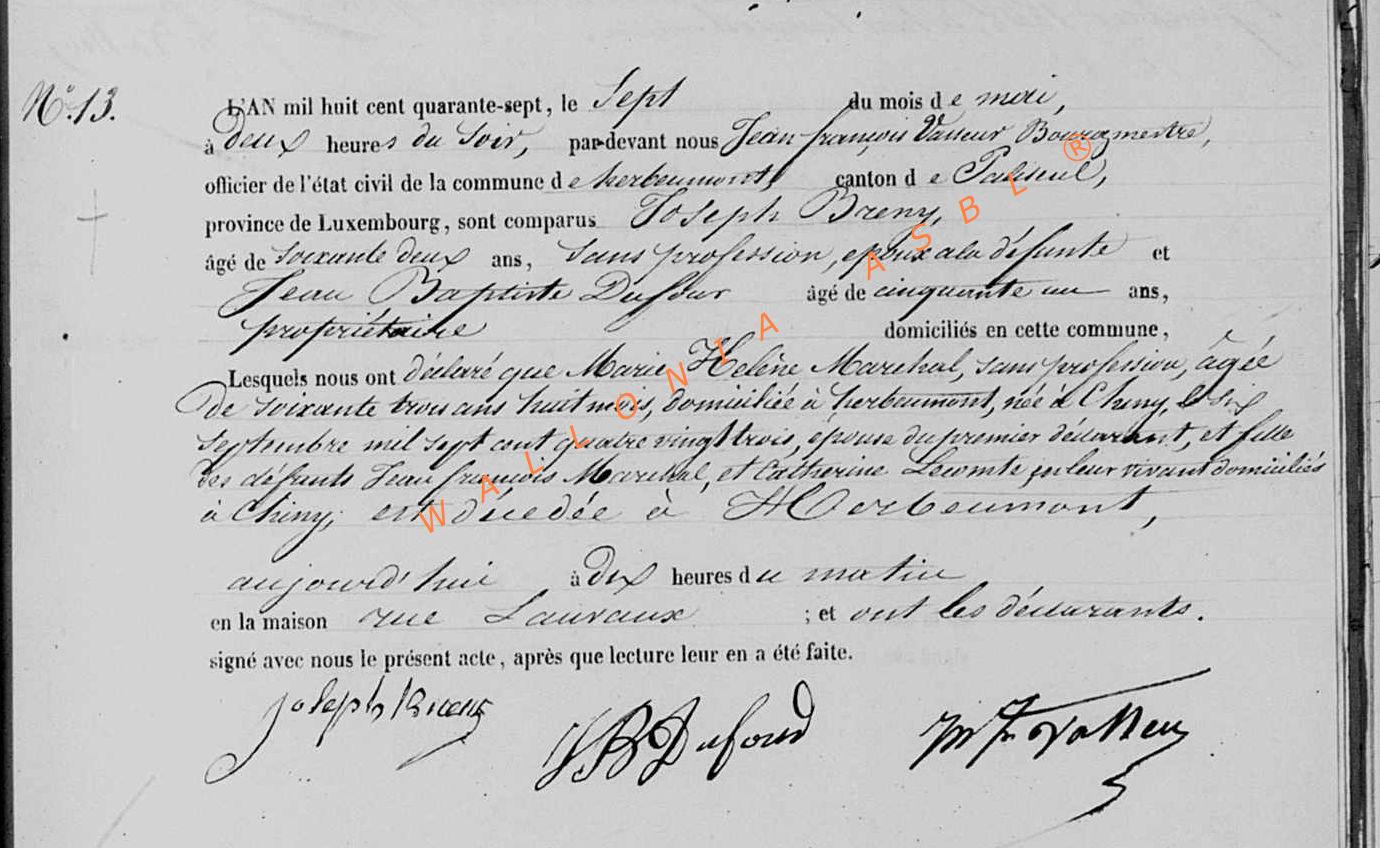 N° 13.
L'AN mil huit cent quarante-sept, le Sept du mois de mai,
à deux heures du Soir, par-devant nous Jean françois Vasseur Bourgmestre,
officier de l'état civil de la commune de herbeumont, canton de Paliseul,
province de Luxembourg, sont comparus Joseph Breny,
âgé de soixante deux ans, sans profession, epoux a la défunte et
Jean Baptiste Dufour âgé de cinquante un ans,
propriétaire domiciliés en cette commune,
Lesquels nous ont déclaré que Marie Helène Marechal, sans profession, âgée
de soixante trois ans huit mois, domiciliée à herbeumont, née à Chiny, le six
septembre mil sept cent quatre vingt trois, épouse du premier déclarant, et fille
des défunts Jean françois Marechal, et Catherine Lecomte en leur vivant domiciliés
à Chiny, est décédée à Herbeumont,
aujourd'hui à dix heures du matin
en la maison rue Lauvaux ; et ont les déclarants.
signé avec nous le présent acte, après que lecture leur en a été faite.
Joseph JB Dufour
WALLONIA ASBL ®